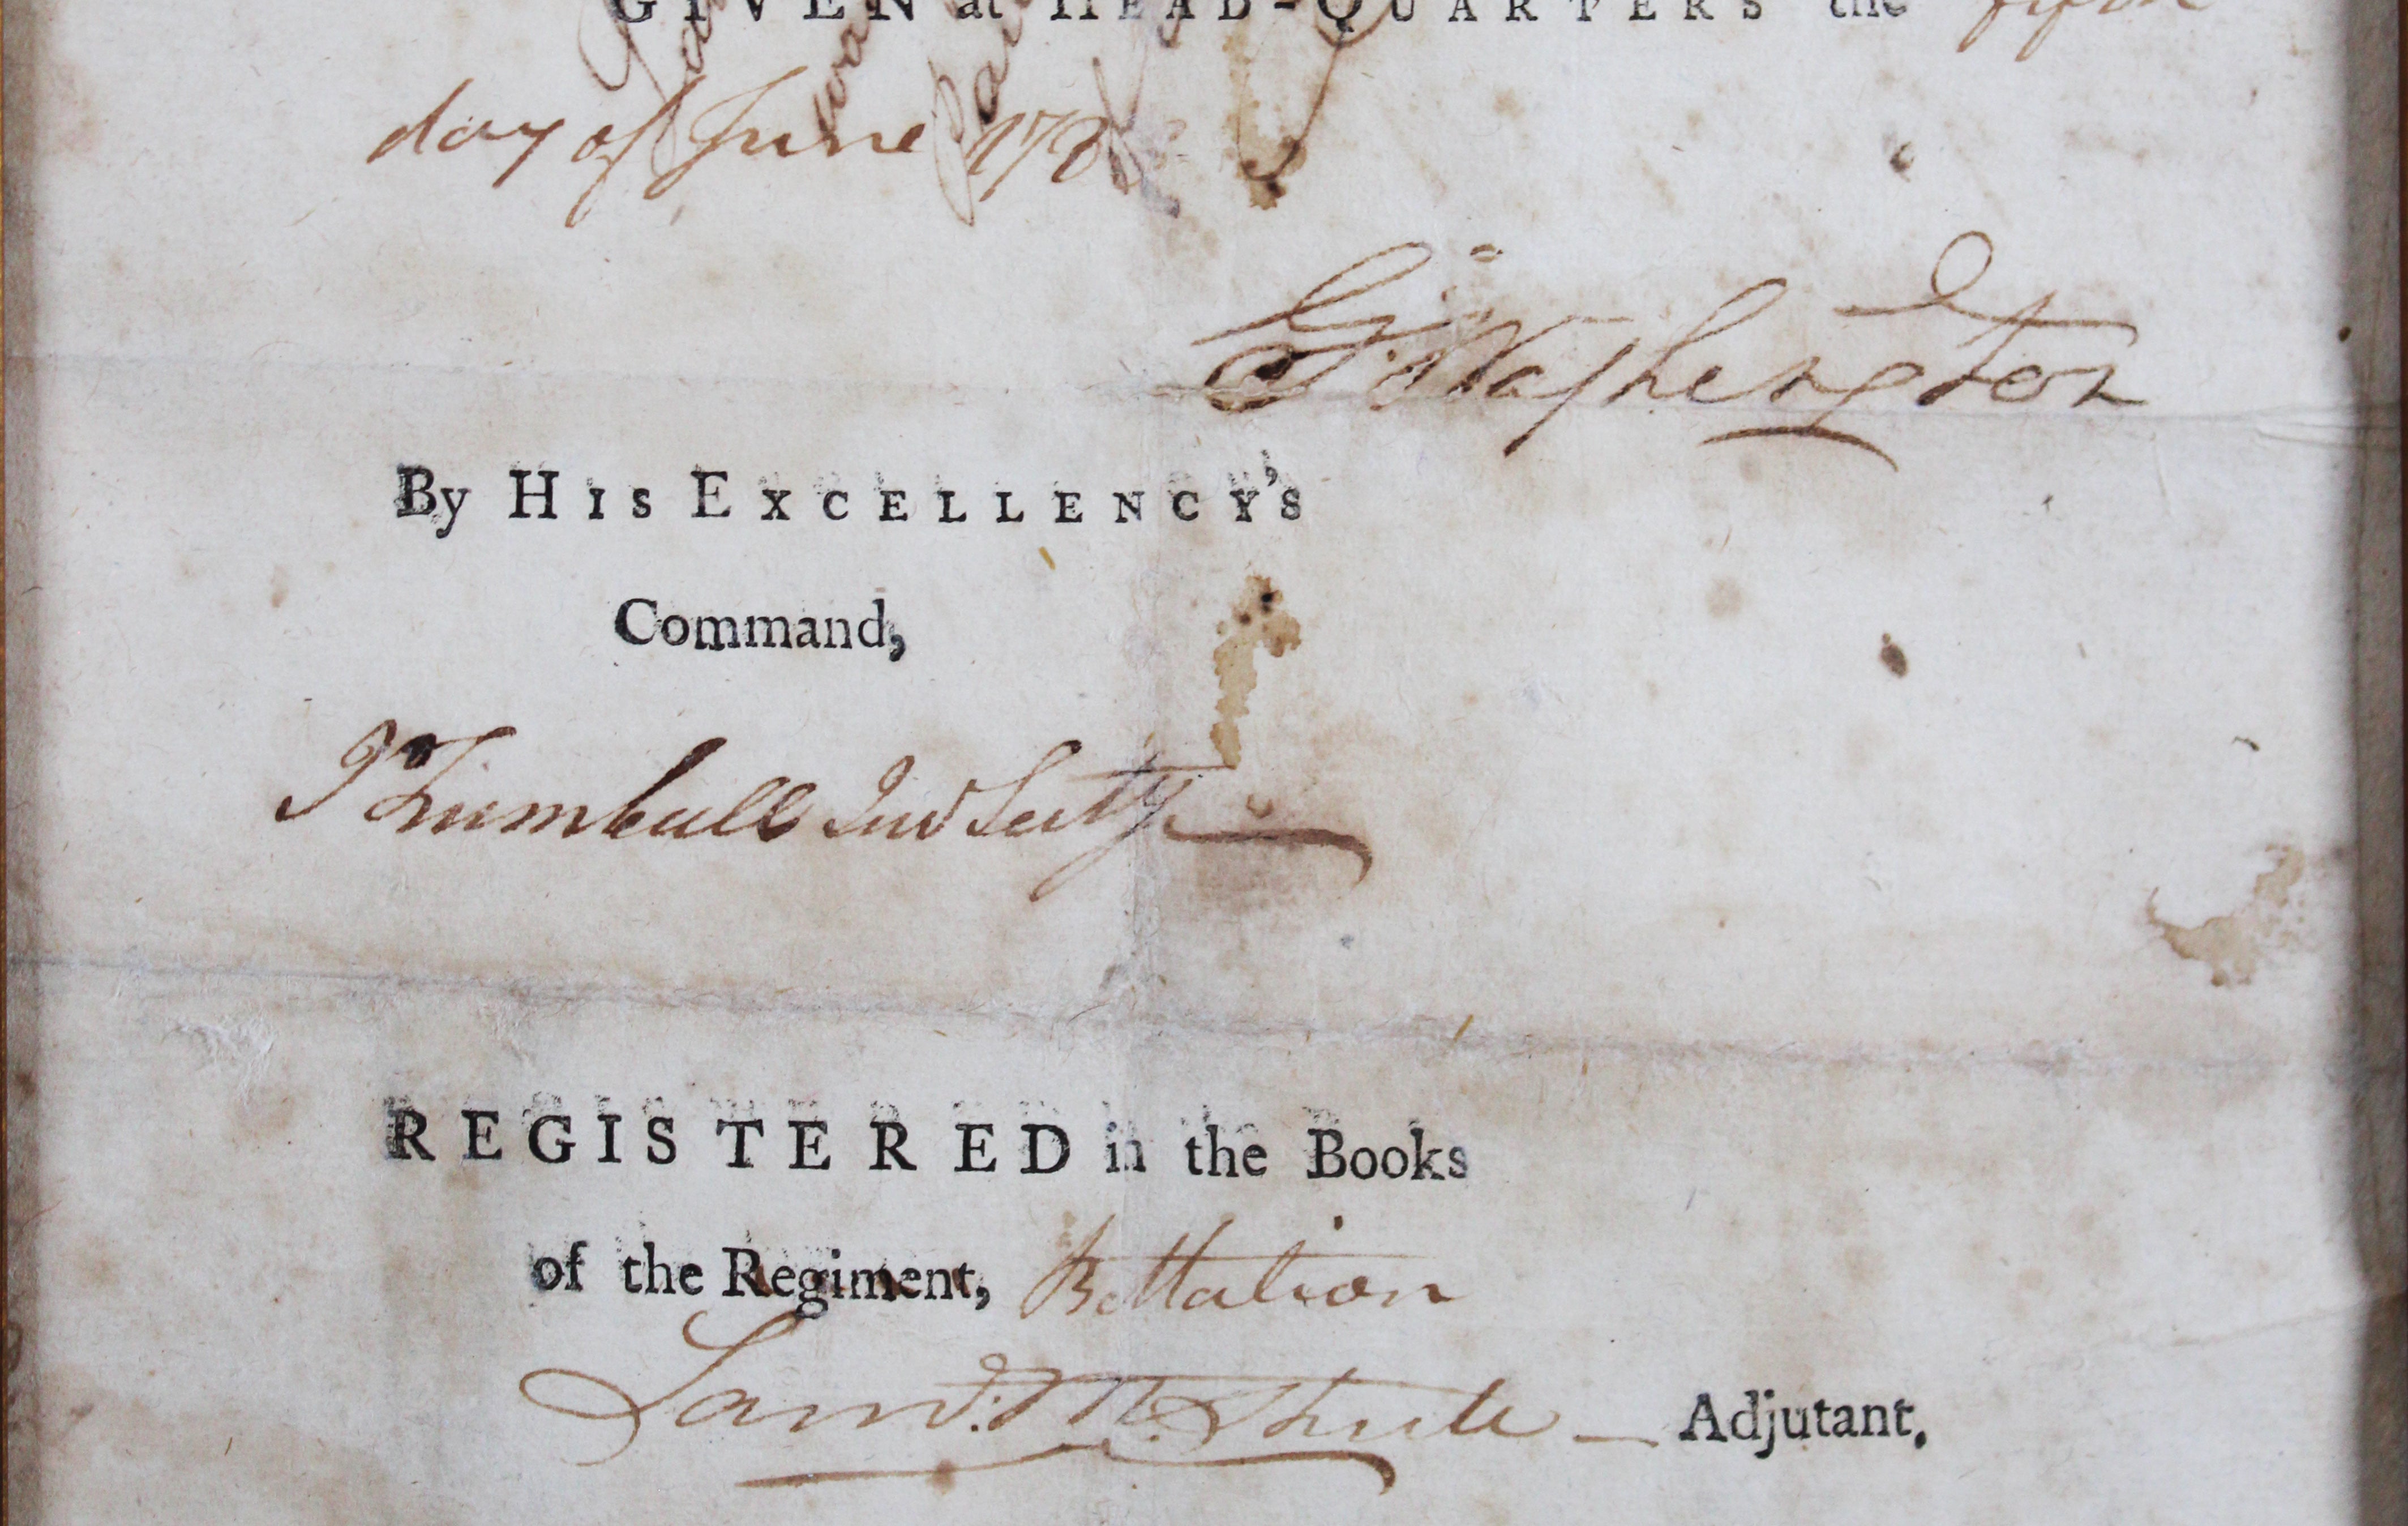 GIVEN at HEAD-QUARTERS the
day of June 178
G Washington
By HIS EXCELLENCY'S
Command,
J Trumbull Jun Secty
REGISTERED in the Books
of the Regiment, Battalion
Adjutant,